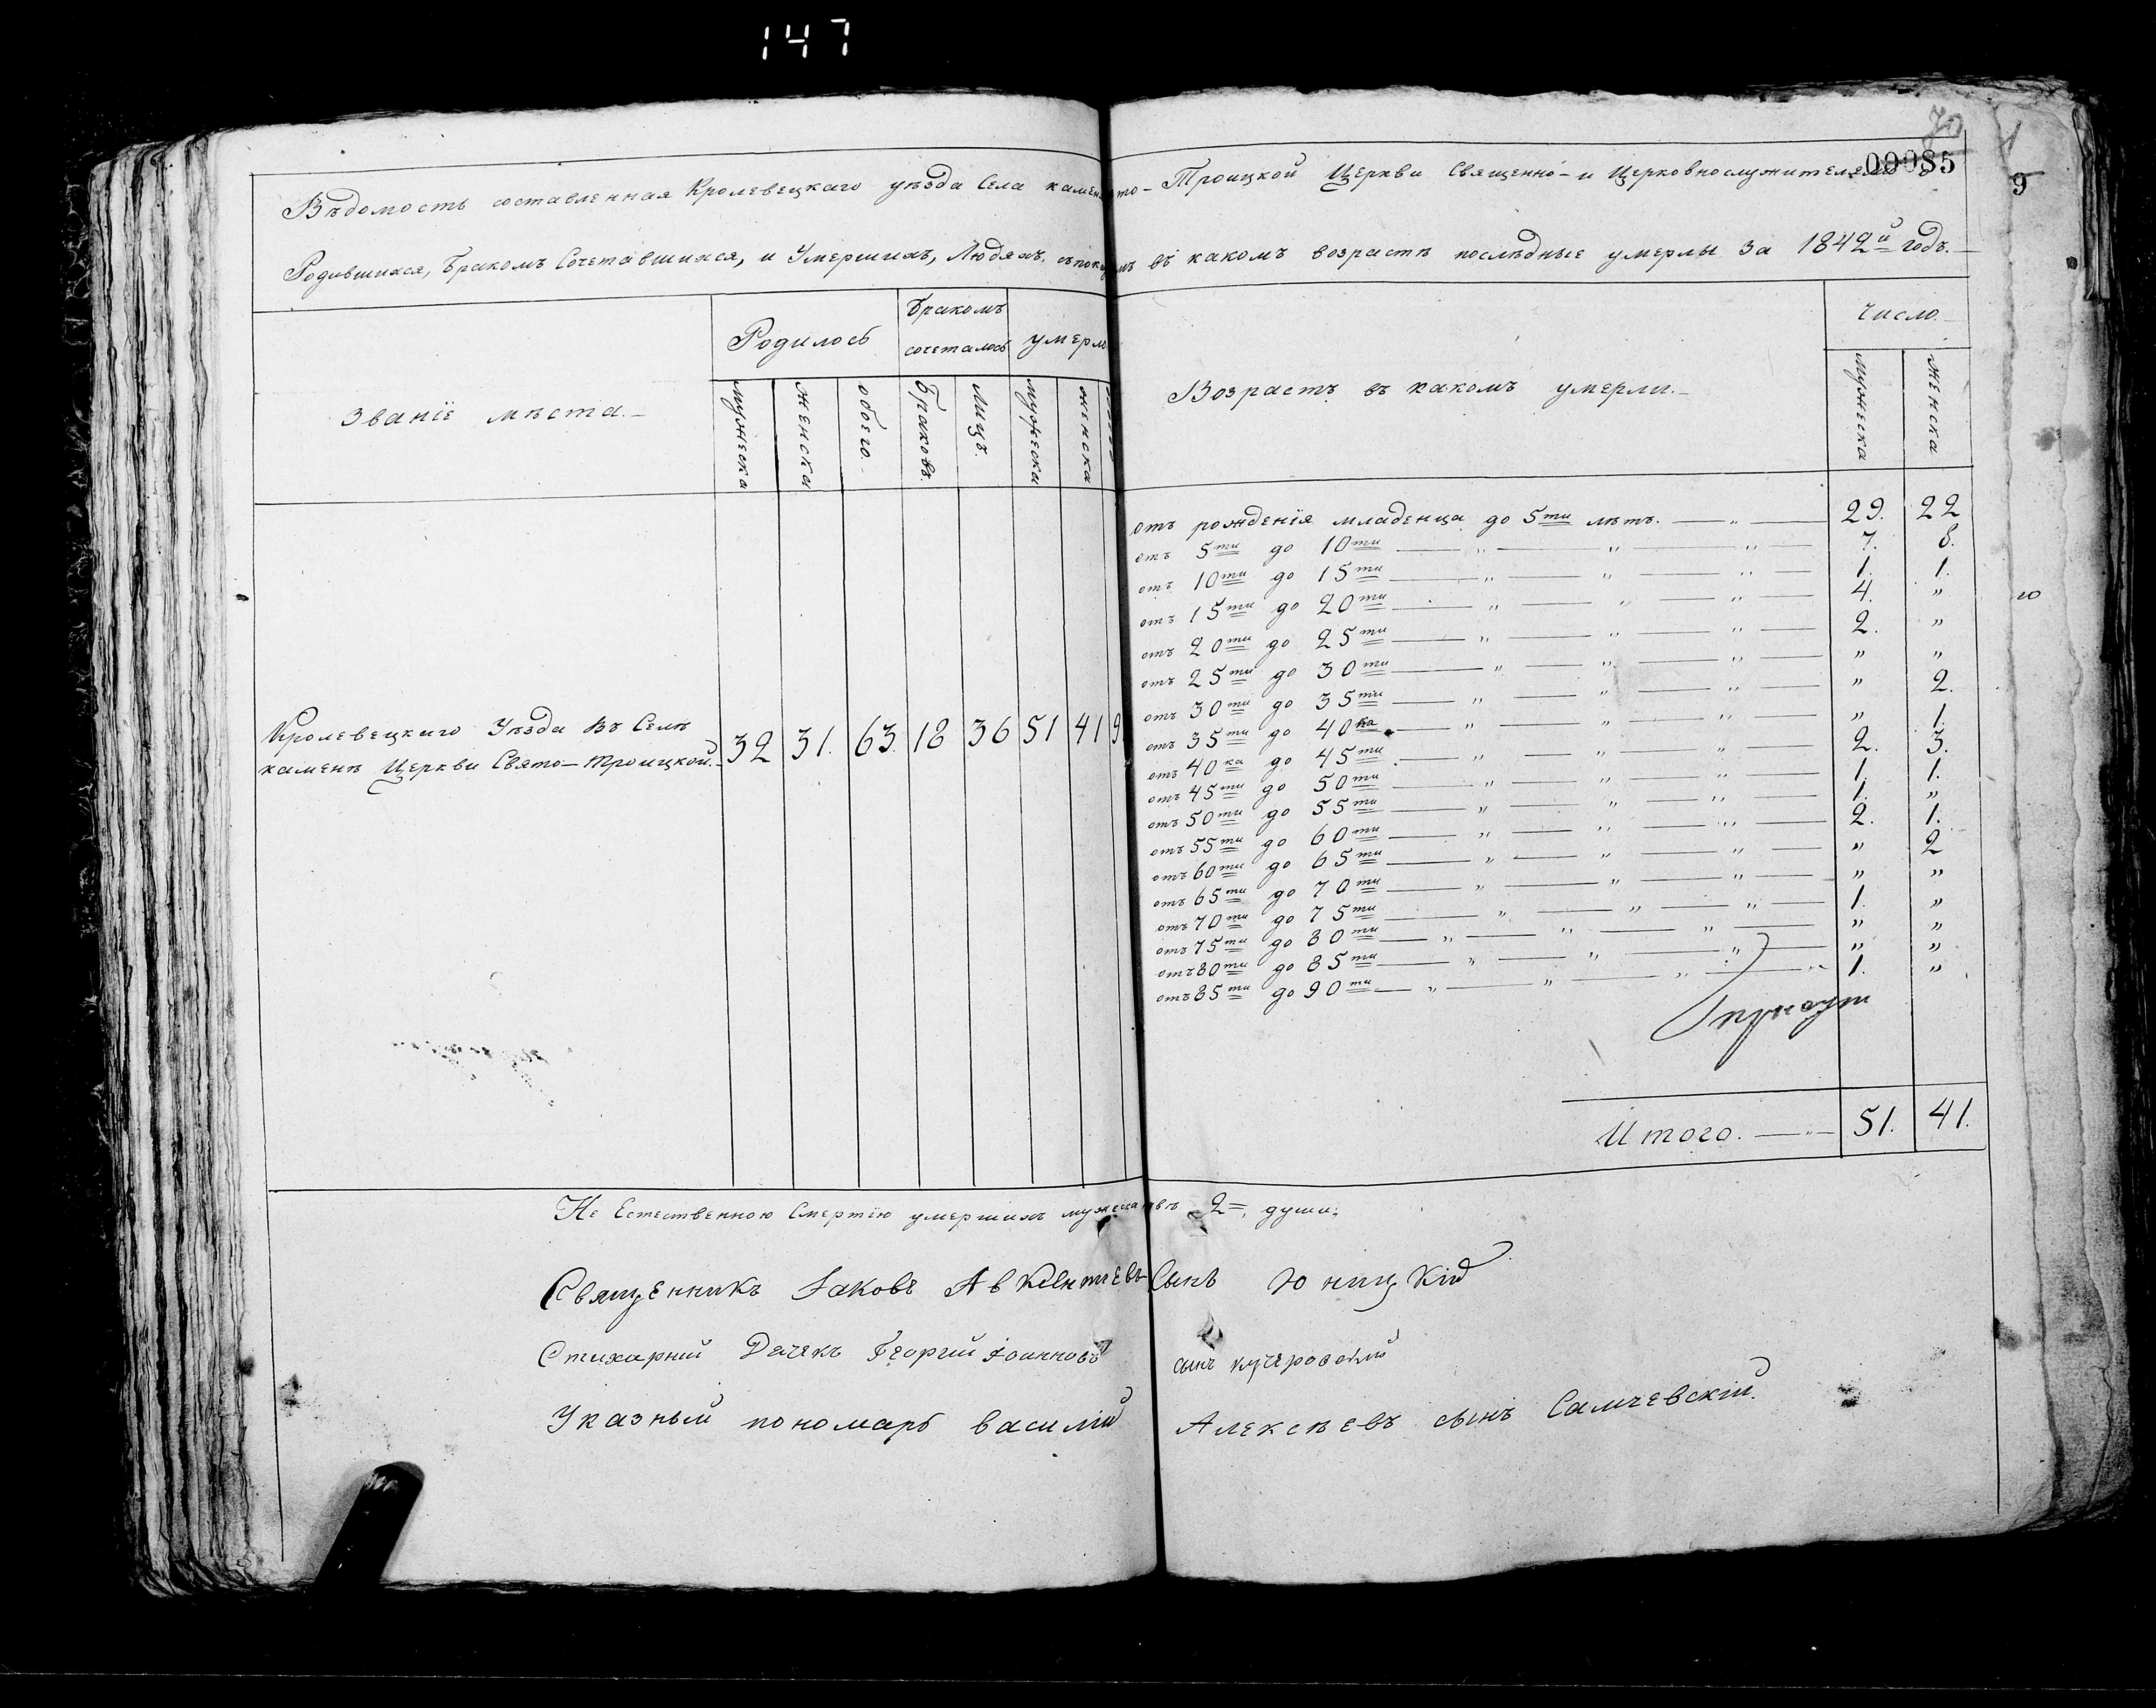 147
70
09085
9
Вѣдомость составленная Кролевецкаго уѣзда Села камен то-Троицкой Церкви Священно-и Церковнослужителями о
Родившихся, Бракомъ Сочетавшихся, и Умершихъ, Людяхъ. въ какомъ возрастѣ послѣдные умерлы за 1842й годъ.
Званіе мѣста.
Родилось
Бракомъ сочеталось
умерло
Возрастъ въ какомъ умерли.
Число.
мужеска
женска
обего.
Браковъ.
Лицъ.
мужеска
женска
мужеска
женска
отъ рожденія младенца до 5ти лѣтъ. — „ — 29. 22
отъ 5ти до 10ти — „ — „ — „ — 7. 8.
отъ 10ти до 15ти — „ — „ — „ — 1. 1.
отъ 15ти до 20ти — „ — „ — „ — 4. „
отъ 20ти до 25ти — „ — „ — „ — 2. „
отъ 25ти до 30ти — „ — „ — „ — „ „
отъ 30ти до 35ти — „ — „ — „ — „ 2.
отъ 35ти до 40ка — „ — „ — „ — „ 1.
отъ 40ка до 45ти — „ — „ — „ — 2. 3.
отъ 45ти до 50ти — „ — „ — „ — 1. 1.
отъ 50ти до 55ти — „ — „ — „ — 1. „
отъ 55ти до 60ти — „ — „ — „ — 2. 1.
отъ 60ти до 65ти — „ — „ — „ — „ 2
отъ 65ти до 70ти — „ — „ — „ — „ „
отъ 70ти до 75ти — „ — „ — „ — 1. „
отъ 75ти до 80ти — „ — „ — „ — „ „
отъ 80ти до 85ти — „ — „ — „ — „ „
отъ 85ти до 90ти — „ — „ — „ — 1. „
Кролевецкаго Уѣзда Въ Селѣ
каменѣ Церкви Свято-Троицкой. 32 31. 63. 18 36 51 41 9
Итого. — 51. 41.
Не Естественною Смертію умершихъ 2=, души;
Священникъ Іаковъ Авксентіевъ Сынъ Юницкій
Стихарний Дячекъ Георгий Іоанновъ сынъ кучеровский
Указный пономарь василій Алексѣевъ сынъ Самчевскій.